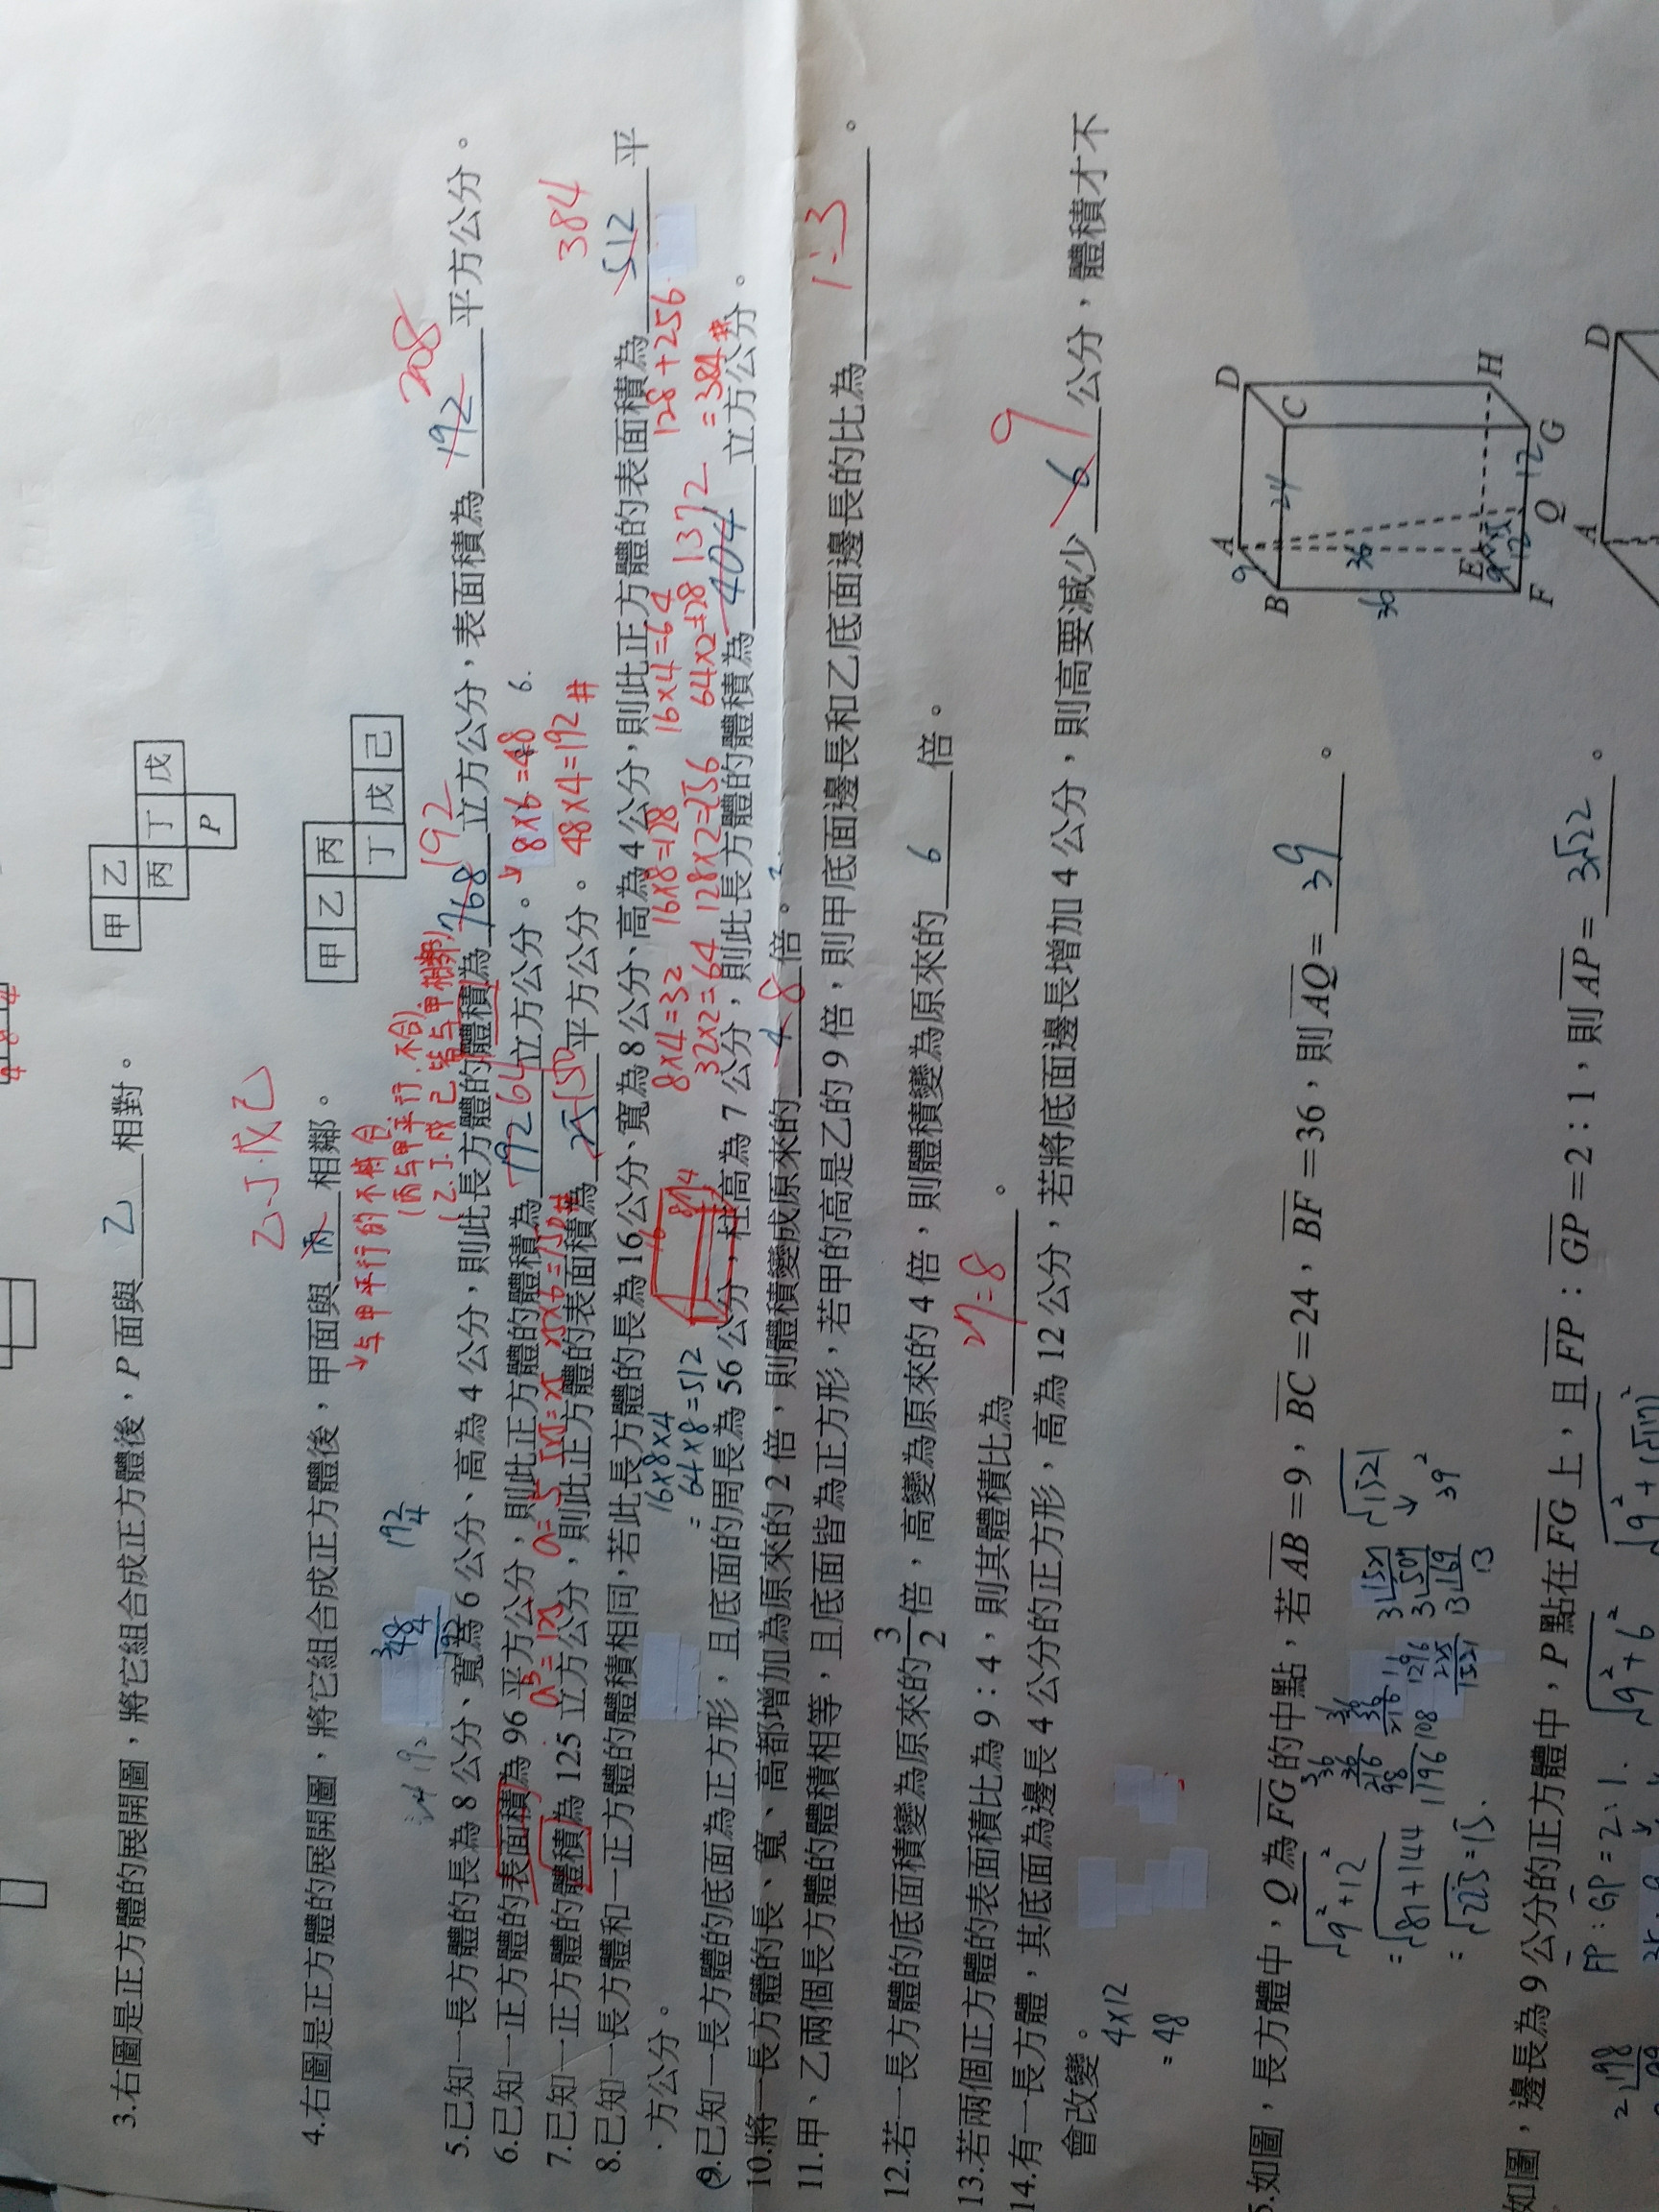 3.右圖是正方體的展開圖，將它組合成正方體後，P 面與 乙 相對。
甲 乙
丙 丁 戊
P
乙.丁.戊.己
4.右圖是正方體的展開圖，將它組合成正方體後，甲面與 丙 相鄰。
甲 乙 丙
丁 戊 己
↓与甲平行的不符合
(丙与甲平行.不合)
(乙.丁.戊.己皆与甲相鄰)
5.已知一長方體的長為 8 公分、寬為 6 公分、高為 4 公分，則此長方體的體積為 768 192 立方公分，表面積為 192 208 平方公分。
6.已知一正方體的表面積為 96 平方公分，則此正方體的體積為 192 64 立方公分。
8×6=48
48×4=192 #
7.已知一正方體的體積為 125 立方公分，則此正方體的表面積為 25 150 平方公分。
a³=125 a=5 5×5=25 25×6=150#
8.已知一長方體和一正方體的體積相同，若此長方體的長為 16 公分、寬為 8 公分、高為 4 公分，則此正方體的表面積為 512 384 平
方公分。
16×8×4
=64×8=512
8×4=32 16×8=128 16×4=64 128+256
32×2=64 128×2=256 64×2=128 =384#
9.已知一長方體的底面為正方形，且底面的周長為 56 公分，柱高為 7 公分，則此長方體的體積為 404 1372 立方公分。
10.將一長方體的長、寬、高都增加為原來的 2 倍，則體積變成原來的 4 8 倍。
11.甲、乙兩個長方體的體積相等，且底面皆為正方形，若甲的高是乙的 9 倍，則甲底面邊長和乙底面邊長的比為 1:3 。
12.若一長方體的底面積變為原來的 3/2 倍，高變為原來的 4 倍，則體積變為原來的 6 倍。
13.若兩個正方體的表面積比為 9：4，則其體積比為 27=8 。
14.有一長方體，其底面為邊長 4 公分的正方形，高為 12 公分，若將底面邊長增加 4 公分，則高要減少 6 9 公分，體積才不
會改變。
4×12
=48
5.如圖，長方體中，Q 為 FG 的中點，若 AB＝9，BC＝24，BF＝36，則 AQ＝ 39 。
√9²+12²
=√81+144
=√225=15
√1521
↓
39²
A B C D E F G H Q
9 24 36 36 12 12
如圖，邊長為 9 公分的正方體中，P 點在 FG 上，且 FP：GP＝2：1，則 AP＝ 3√22 。
FP:GP=2:1
√9²+6²
A D
2 198